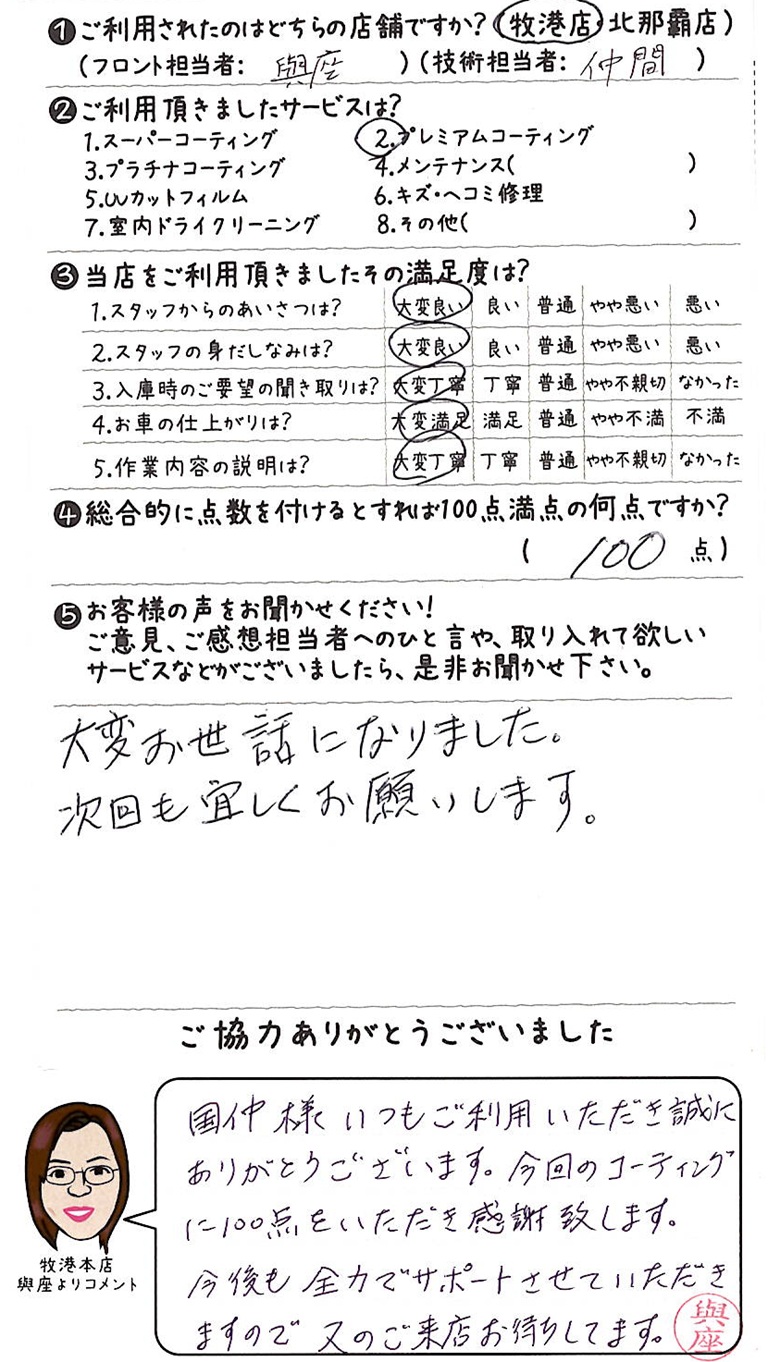 ❶ご利用されたのはどちらの店舗ですか？(牧港店・北那覇店)
(フロント担当者: 與座 )(技術担当者: 仲間 )
❷ご利用頂きましたサービスは？
1.スーパーコーティング 2.プレミアムコーティング
3.プラチナコーティング 4.メンテナンス( )
5.UVカットフィルム 6.キズ・ヘコミ修理
7.室内ドライクリーニング 8.その他( )
❸当店をご利用頂きましたその満足度は？
1.スタッフからのあいさつは？ 大変良い 良い 普通 やや悪い 悪い
2.スタッフの身だしなみは？ 大変良い 良い 普通 やや悪い 悪い
3.入庫時のご要望の聞き取りは？ 大変丁寧 丁寧 普通 やや不親切 なかった
4.お車の仕上がりは？ 大変満足 満足 普通 やや不満 不満
5.作業内容の説明は？ 大変丁寧 丁寧 普通 やや不親切 なかった
❹総合的に点数を付けるとすれば100点満点の何点ですか？
( 100 点)
❺お客様の声をお聞かせください！
ご意見、ご感想担当者へのひと言や、取り入れて欲しい
サービスなどがございましたら、是非お聞かせ下さい。
大変お世話になりました。
次回も宜しくお願いします。
ご協力ありがとうございました
国仲様 いつもご利用いただき誠に
ありがとうございます。今回のコーティング
に100点をいただき感謝致します。
今後も全力でサポートさせていただき
ますので又のご来店お待ちしてます。
與座
牧港本店
與座よりコメント